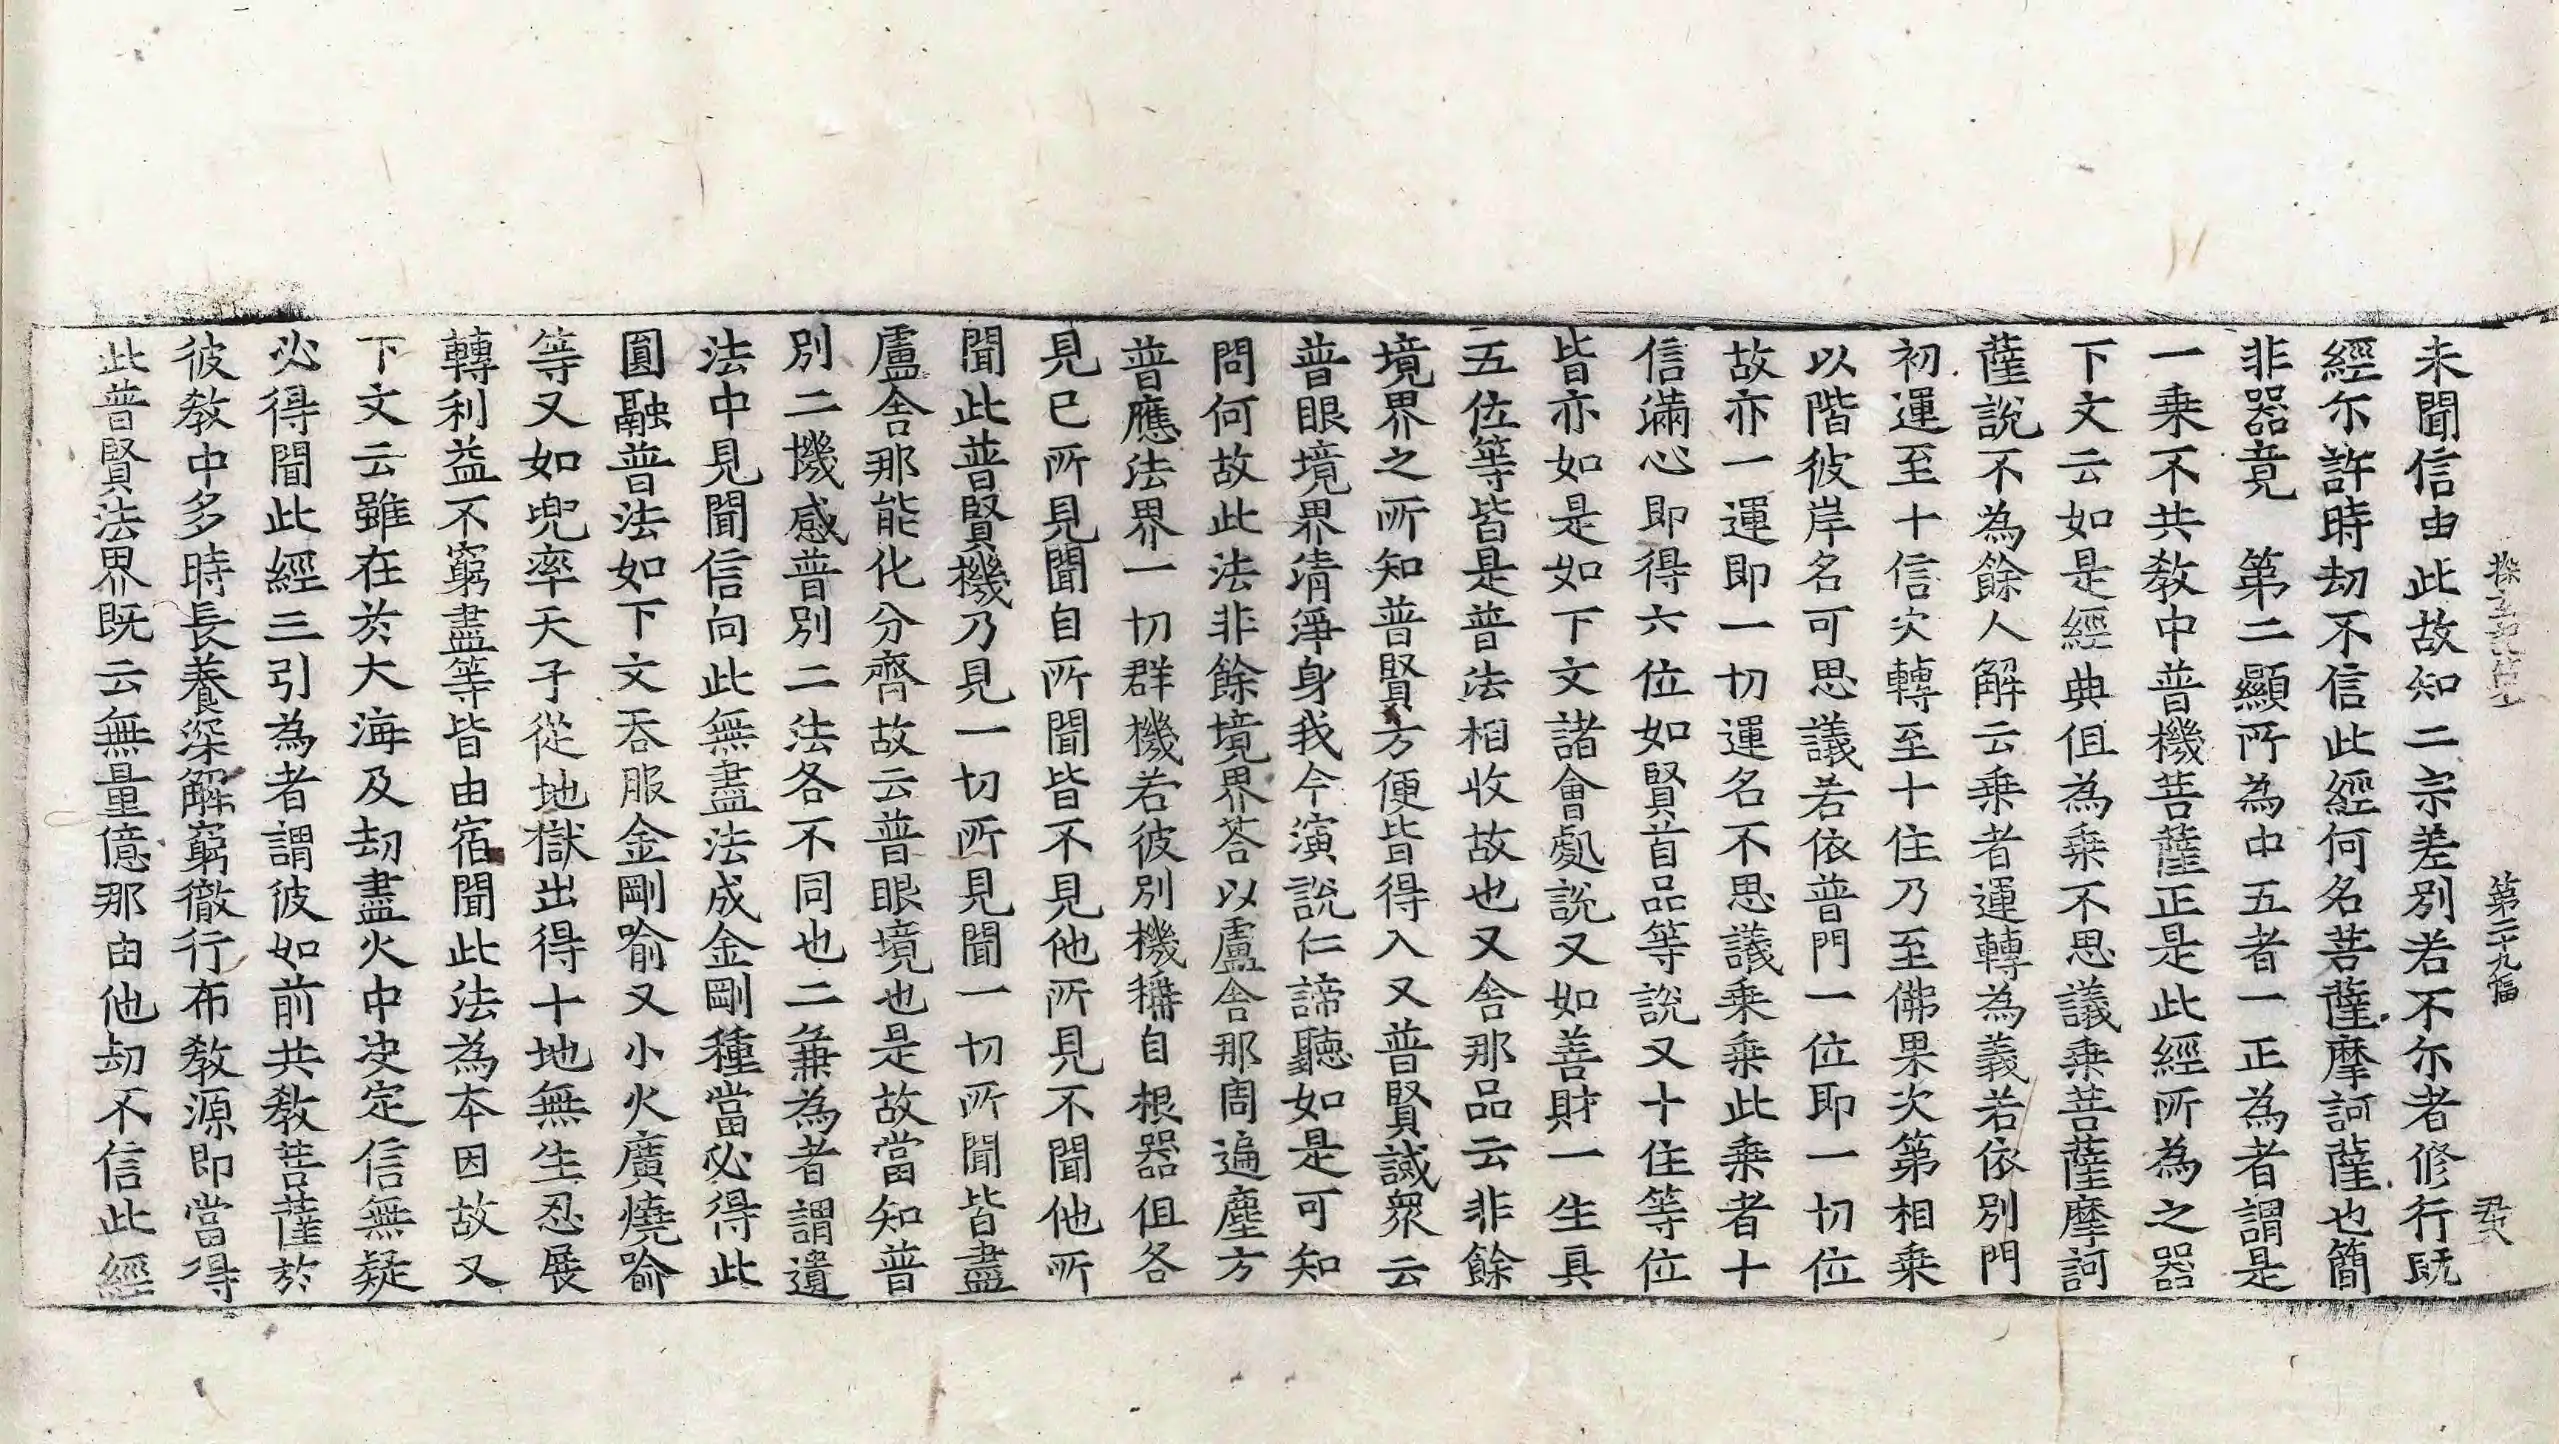 探玄記第一 第二十九幅
未聞信由此故知二宗差別若不尒者修行既
經尒許時劫不信此經何名菩薩摩訶薩也簡
非器竟 第二顯所為中五者一正為者謂是
一乗不共教中普機菩薩正是此經所為之器
下文云如是經典但為乗不思議乗菩薩摩訶
薩說不為餘人解云乗者運轉為義若依別門
初運至十信次轉至十住乃至佛果次第相乗
以階彼岸名可思議若依普門一位即一切位
故亦一運即一切運名不思議乗乗此乗者十
信滿心即得六位如賢首品等說又十住等位
皆亦如是如下文諸會處說又如善財一生具
五位等皆是普法相收故也又舍那品云非餘
境界之所知普賢方便皆得入又普賢誡衆云
普眼境界清淨身我今演說仁諦聽如是可知
問何故此法非餘境界荅以盧舍那周遍塵方
普應法界一切群機若彼別機稱自根器但各
見已所見聞自所聞皆不見他所見不聞他所
聞此普賢機乃見一切所見聞一切所聞皆盡
盧舍那能化分齊故云普眼境也是故當知普
別二機感普別二法各不同也二兼為者謂遺
法中見聞信向此無盡法成金剛種當必得此
圓融普法如下文吞服金剛喻又小火廣燒喻
等又如兜率天子從地獄出得十地無生忍展
轉利益不窮盡等皆由宿聞此法為本因故又
下文云雖在於大海及劫盡火中决定信無疑
必得聞此經三引為者謂彼如前共教菩薩於
彼教中多時長養深解窮徹行布教源即當得
此普賢法界既云無量億那由他劫不信此經